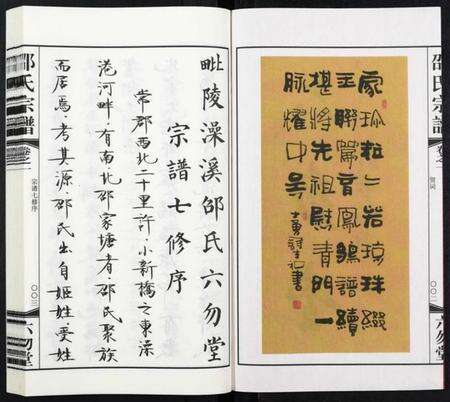 邵氏宗譜
賀詞
〇〇二
六勿堂
家珍粒二若琼珠綴
玉聯篇育鳳雛譜續
堪將先祖慰青門一
脉耀中吴
毗陵澡溪邵氏六勿堂
宗譜七修序
常郡西北二十里許，小新橋之東澡
港河畔，有南北邵家塘者，邵氏聚族
而居焉。考其源，邵氏出自姬姓受姓
邵氏宗譜
宗譜七修序
〇〇三
六勿堂